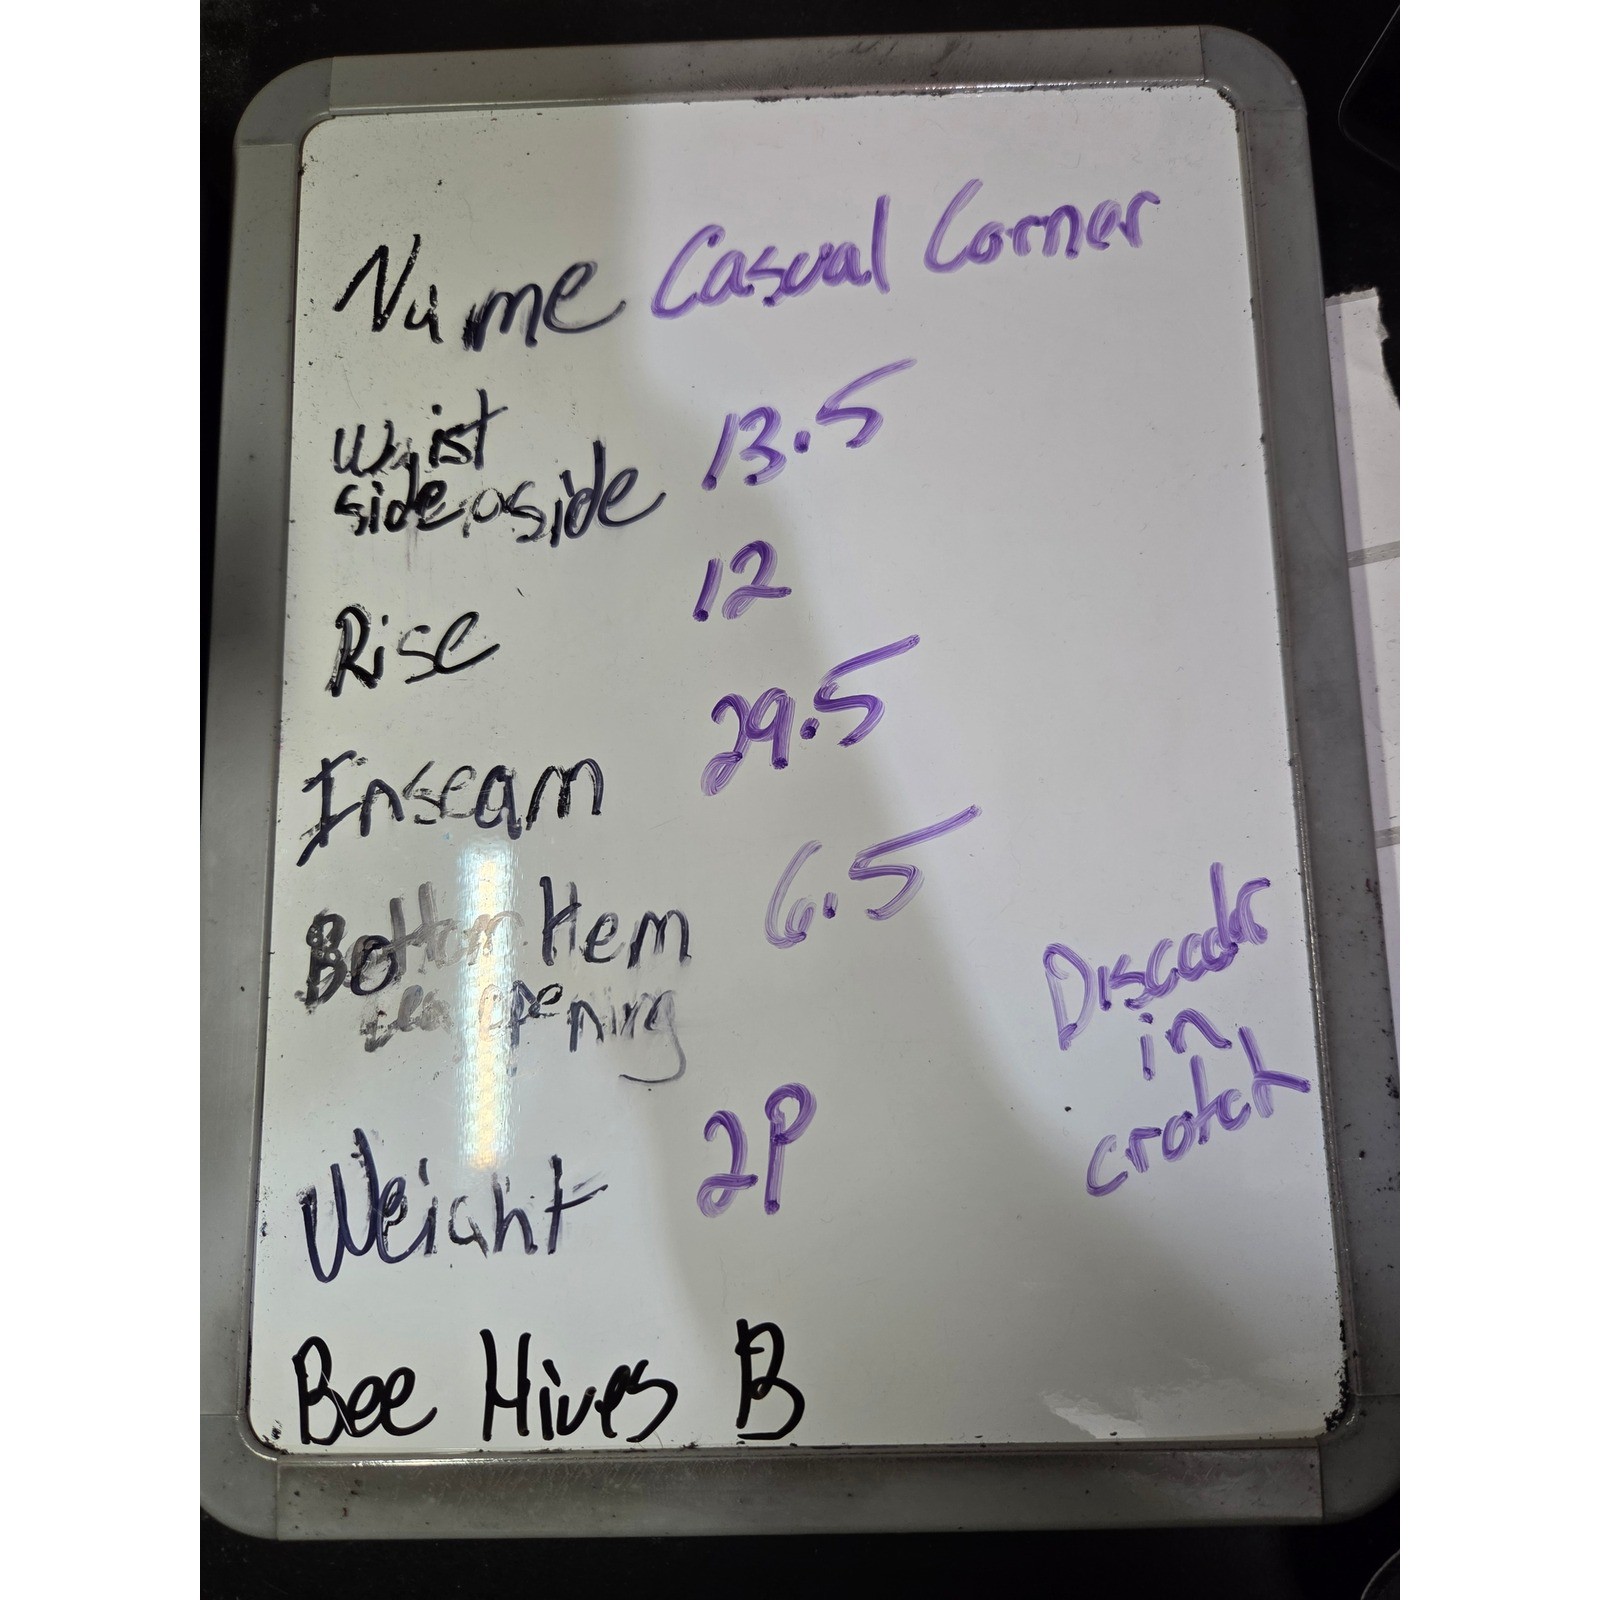 Name Casual Corner
Waist 13.5
side to side
Rise 12
Inseam 29.5
Bottom Hem 6.5
leg opening
Weight 2P
Discoolr
in
crotch
Bee Hives B